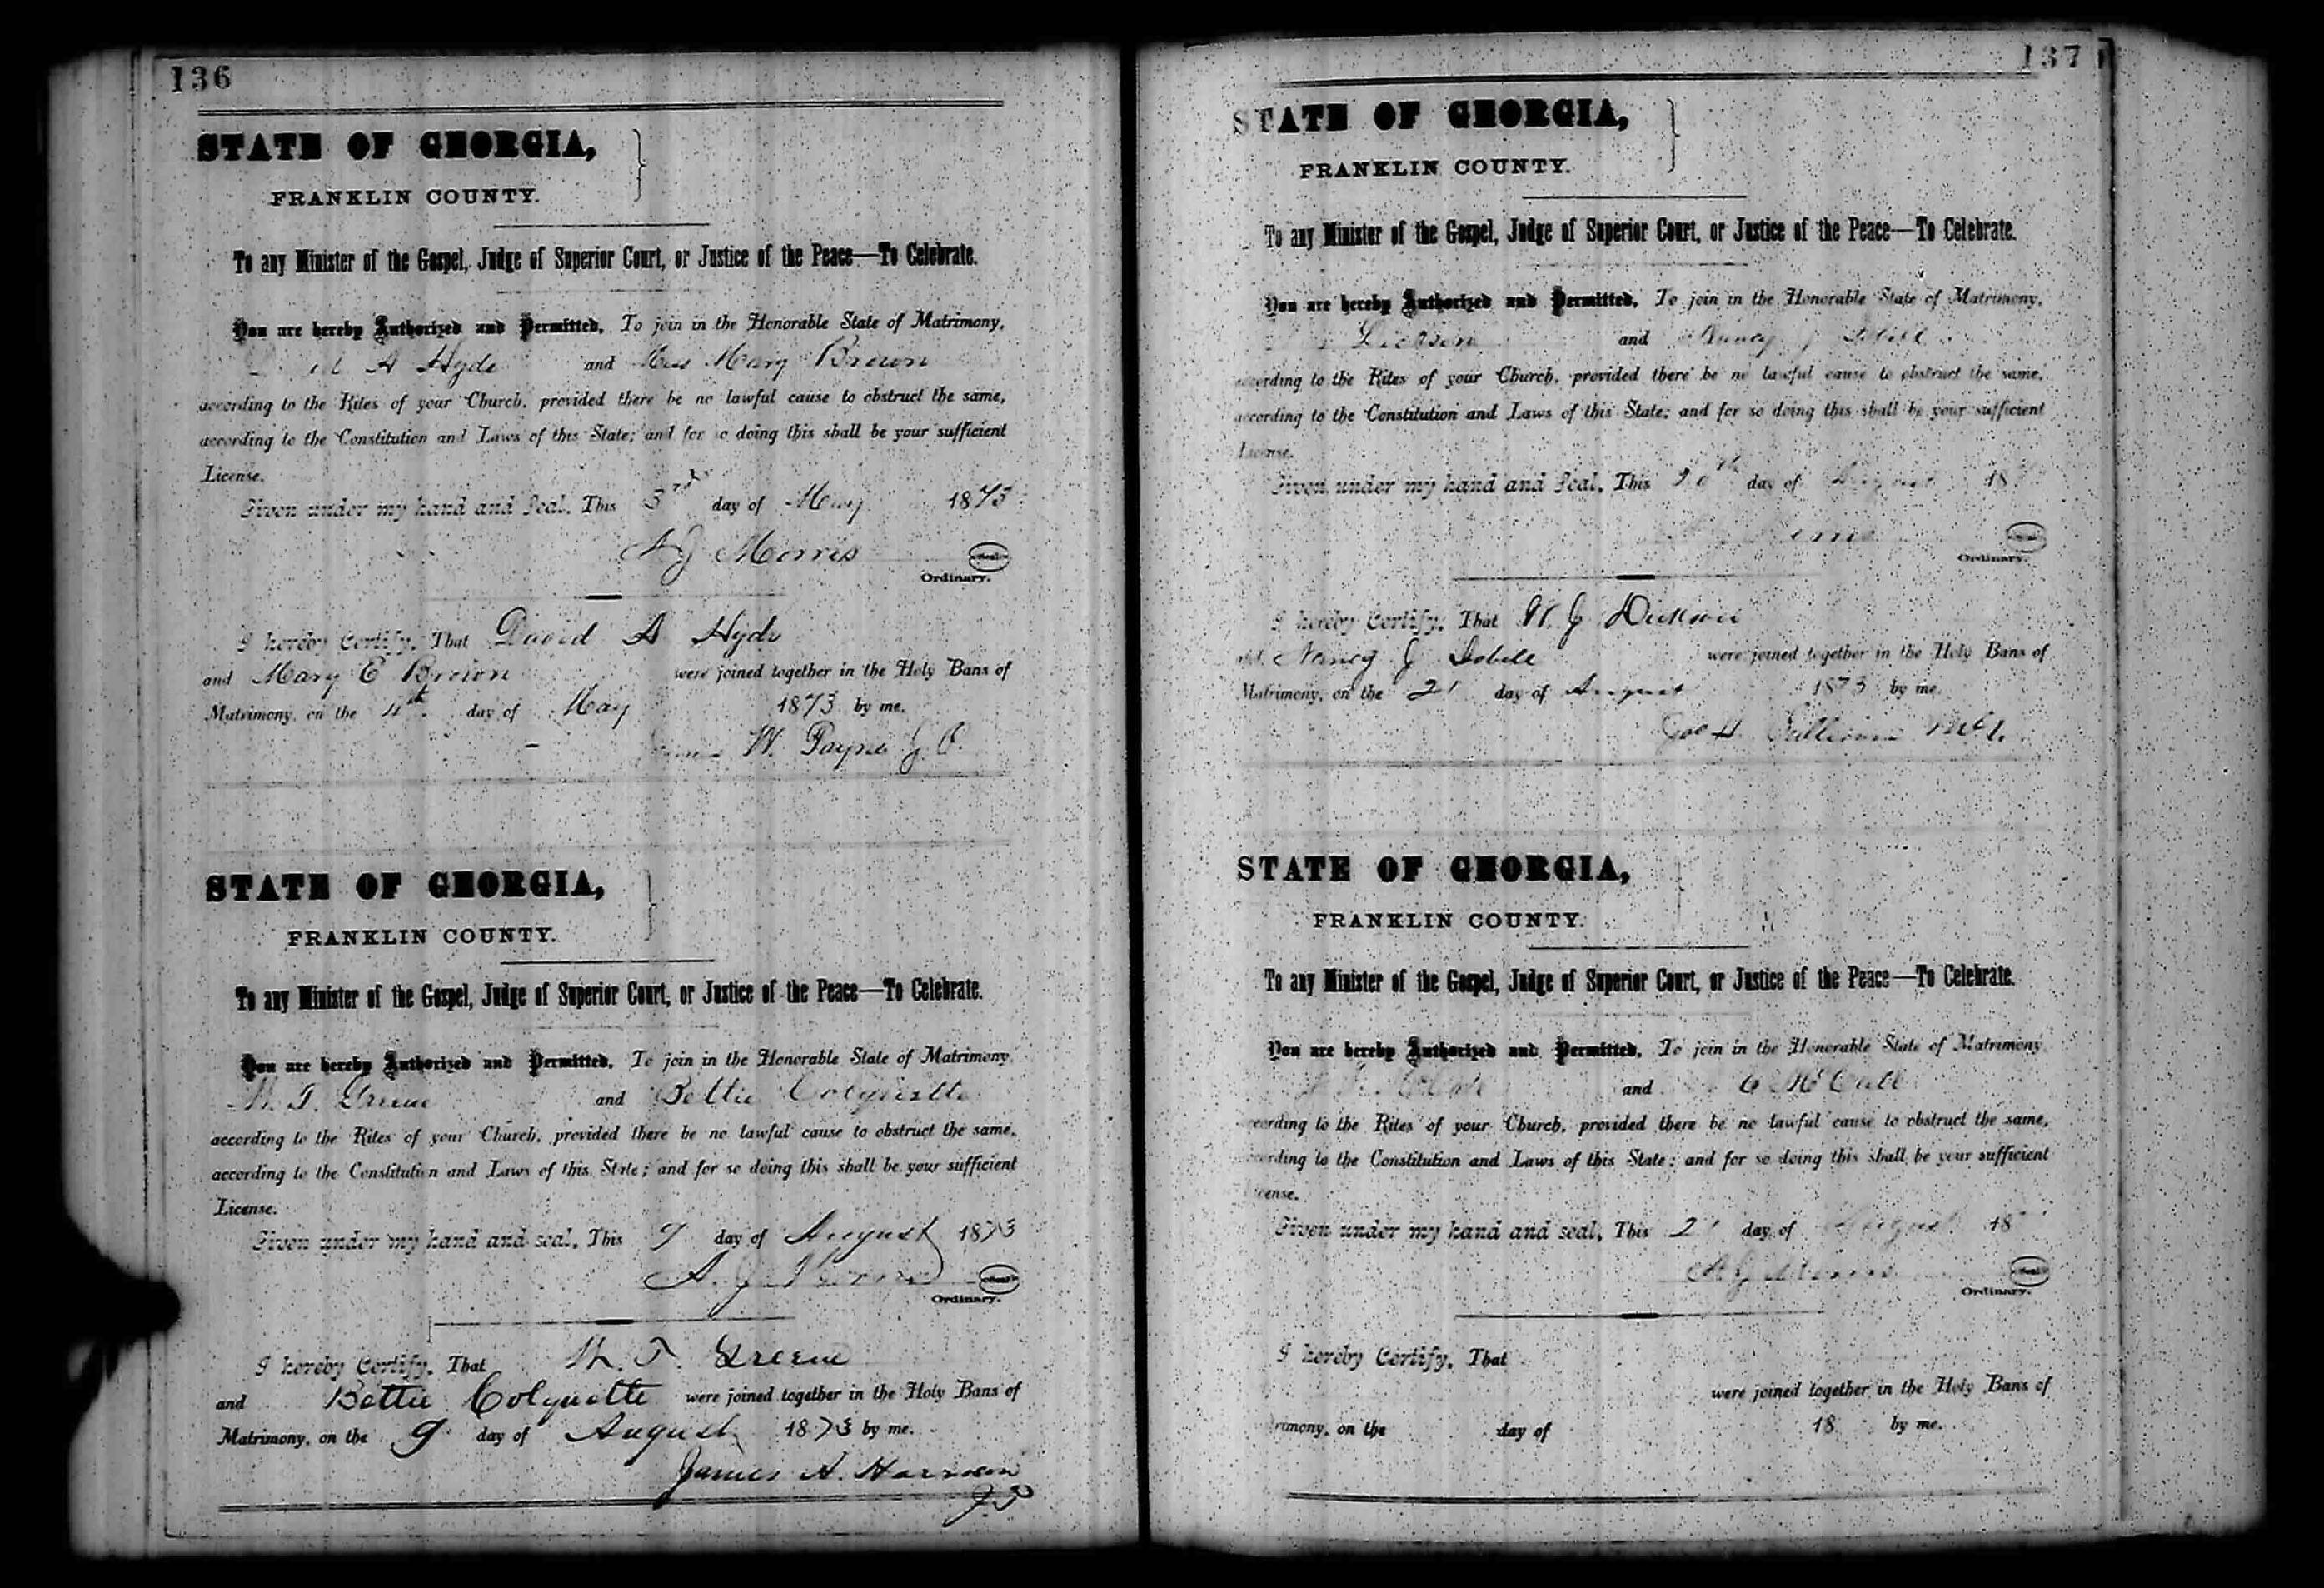 136
STATE OF GEORGIA,
FRANKLIN COUNTY.
To any Minister of the Gospel, Judge of Superior Court, or Justice of the Peace—To Celebrate.
You are hereby Authorized and Permitted, To join in the Honorable State of Matrimony,
A Hyde and Miss Mary Brown
according to the Rites of your Church, provided there be no lawful cause to obstruct the same,
according to the Constitution and Laws of this State; and for so doing this shall be your sufficient
License.
Given under my hand and Seal, This 3rd day of May 1873
A J Morris
Ordinary.
I hereby Certify, That David A Hyde
and Mary E Brown were joined together in the Holy Bans of
Matrimony, on the 4th day of May 1873 by me.
W. Payne J. P.
STATE OF GEORGIA,
FRANKLIN COUNTY.
To any Minister of the Gospel, Judge of Superior Court, or Justice of the Peace—To Celebrate.
You are hereby Authorized and Permitted, To join in the Honorable State of Matrimony,
T. Greene and Bettie Colquette
according to the Rites of your Church, provided there be no lawful cause to obstruct the same,
according to the Constitution and Laws of this State; and for so doing this shall be your sufficient
License.
Given under my hand and seal, This 9 day of August 1873
A. J. Morris
Ordinary.
I hereby Certify, That T. Greene
and Bettie Colquette were joined together in the Holy Bans of
Matrimony, on the 9 day of August 1873 by me.
James H. Harrison
J.P
137
STATE OF GEORGIA,
FRANKLIN COUNTY.
To any Minister of the Gospel, Judge of Superior Court, or Justice of the Peace—To Celebrate.
You are hereby Authorized and Permitted, To join in the Honorable State of Matrimony,
and Nancy J
according to the Rites of your Church, provided there be no lawful cause to obstruct the same,
according to the Constitution and Laws of this State; and for so doing this shall be your sufficient
License.
Given under my hand and Seal, This day of August 18
Ordinary.
I hereby Certify, That W. J Dickson
and Nancy J were joined together in the Holy Bans of
Matrimony, on the 21 day of August 1873 by me.
Sullivan
STATE OF GEORGIA,
FRANKLIN COUNTY.
To any Minister of the Gospel, Judge of Superior Court, or Justice of the Peace—To Celebrate.
You are hereby Authorized and Permitted, To join in the Honorable State of Matrimony
and
according to the Rites of your Church, provided there be no lawful cause to obstruct the same,
according to the Constitution and Laws of this State; and for so doing this shall be your sufficient
License.
Given under my hand and seal, This 21 day of August 18
A J Morris
Ordinary.
I hereby Certify, That
were joined together in the Holy Bans of
rimony, on the day of 18 by me.